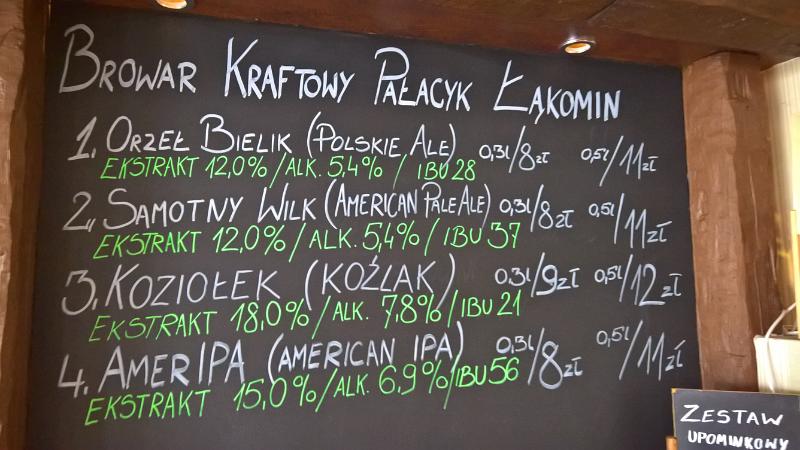 BROWAR KRAFTOWY PAŁACYK ŁĄKOMIN
1. ORZEŁ BIELIK (POLSKIE ALE) 0,3l/8zł 0,5l/11zł
EKSTRAKT 12,0%/ALK. 5,4% / IBU 28
2. SAMOTNY WILK (AMERICAN PALE ALE) 0,3l/8zł 0,5l/11zł
EKSTRAKT 12,0%/ALK. 5,4%/IBU 37
3. KOZIOŁEK (KOŹLAK) 0,3l/9zł 0,5l/12zł
EKSTRAKT 18,0%/ALK. 7,8%/IBU 21
4. AMERIPA (AMERICAN IPA) 0,3l/8zł 0,5l/11zł
EKSTRAKT 15,0%/ALK. 6,9%/IBU 56
ZESTAW
UPOMINKOWY